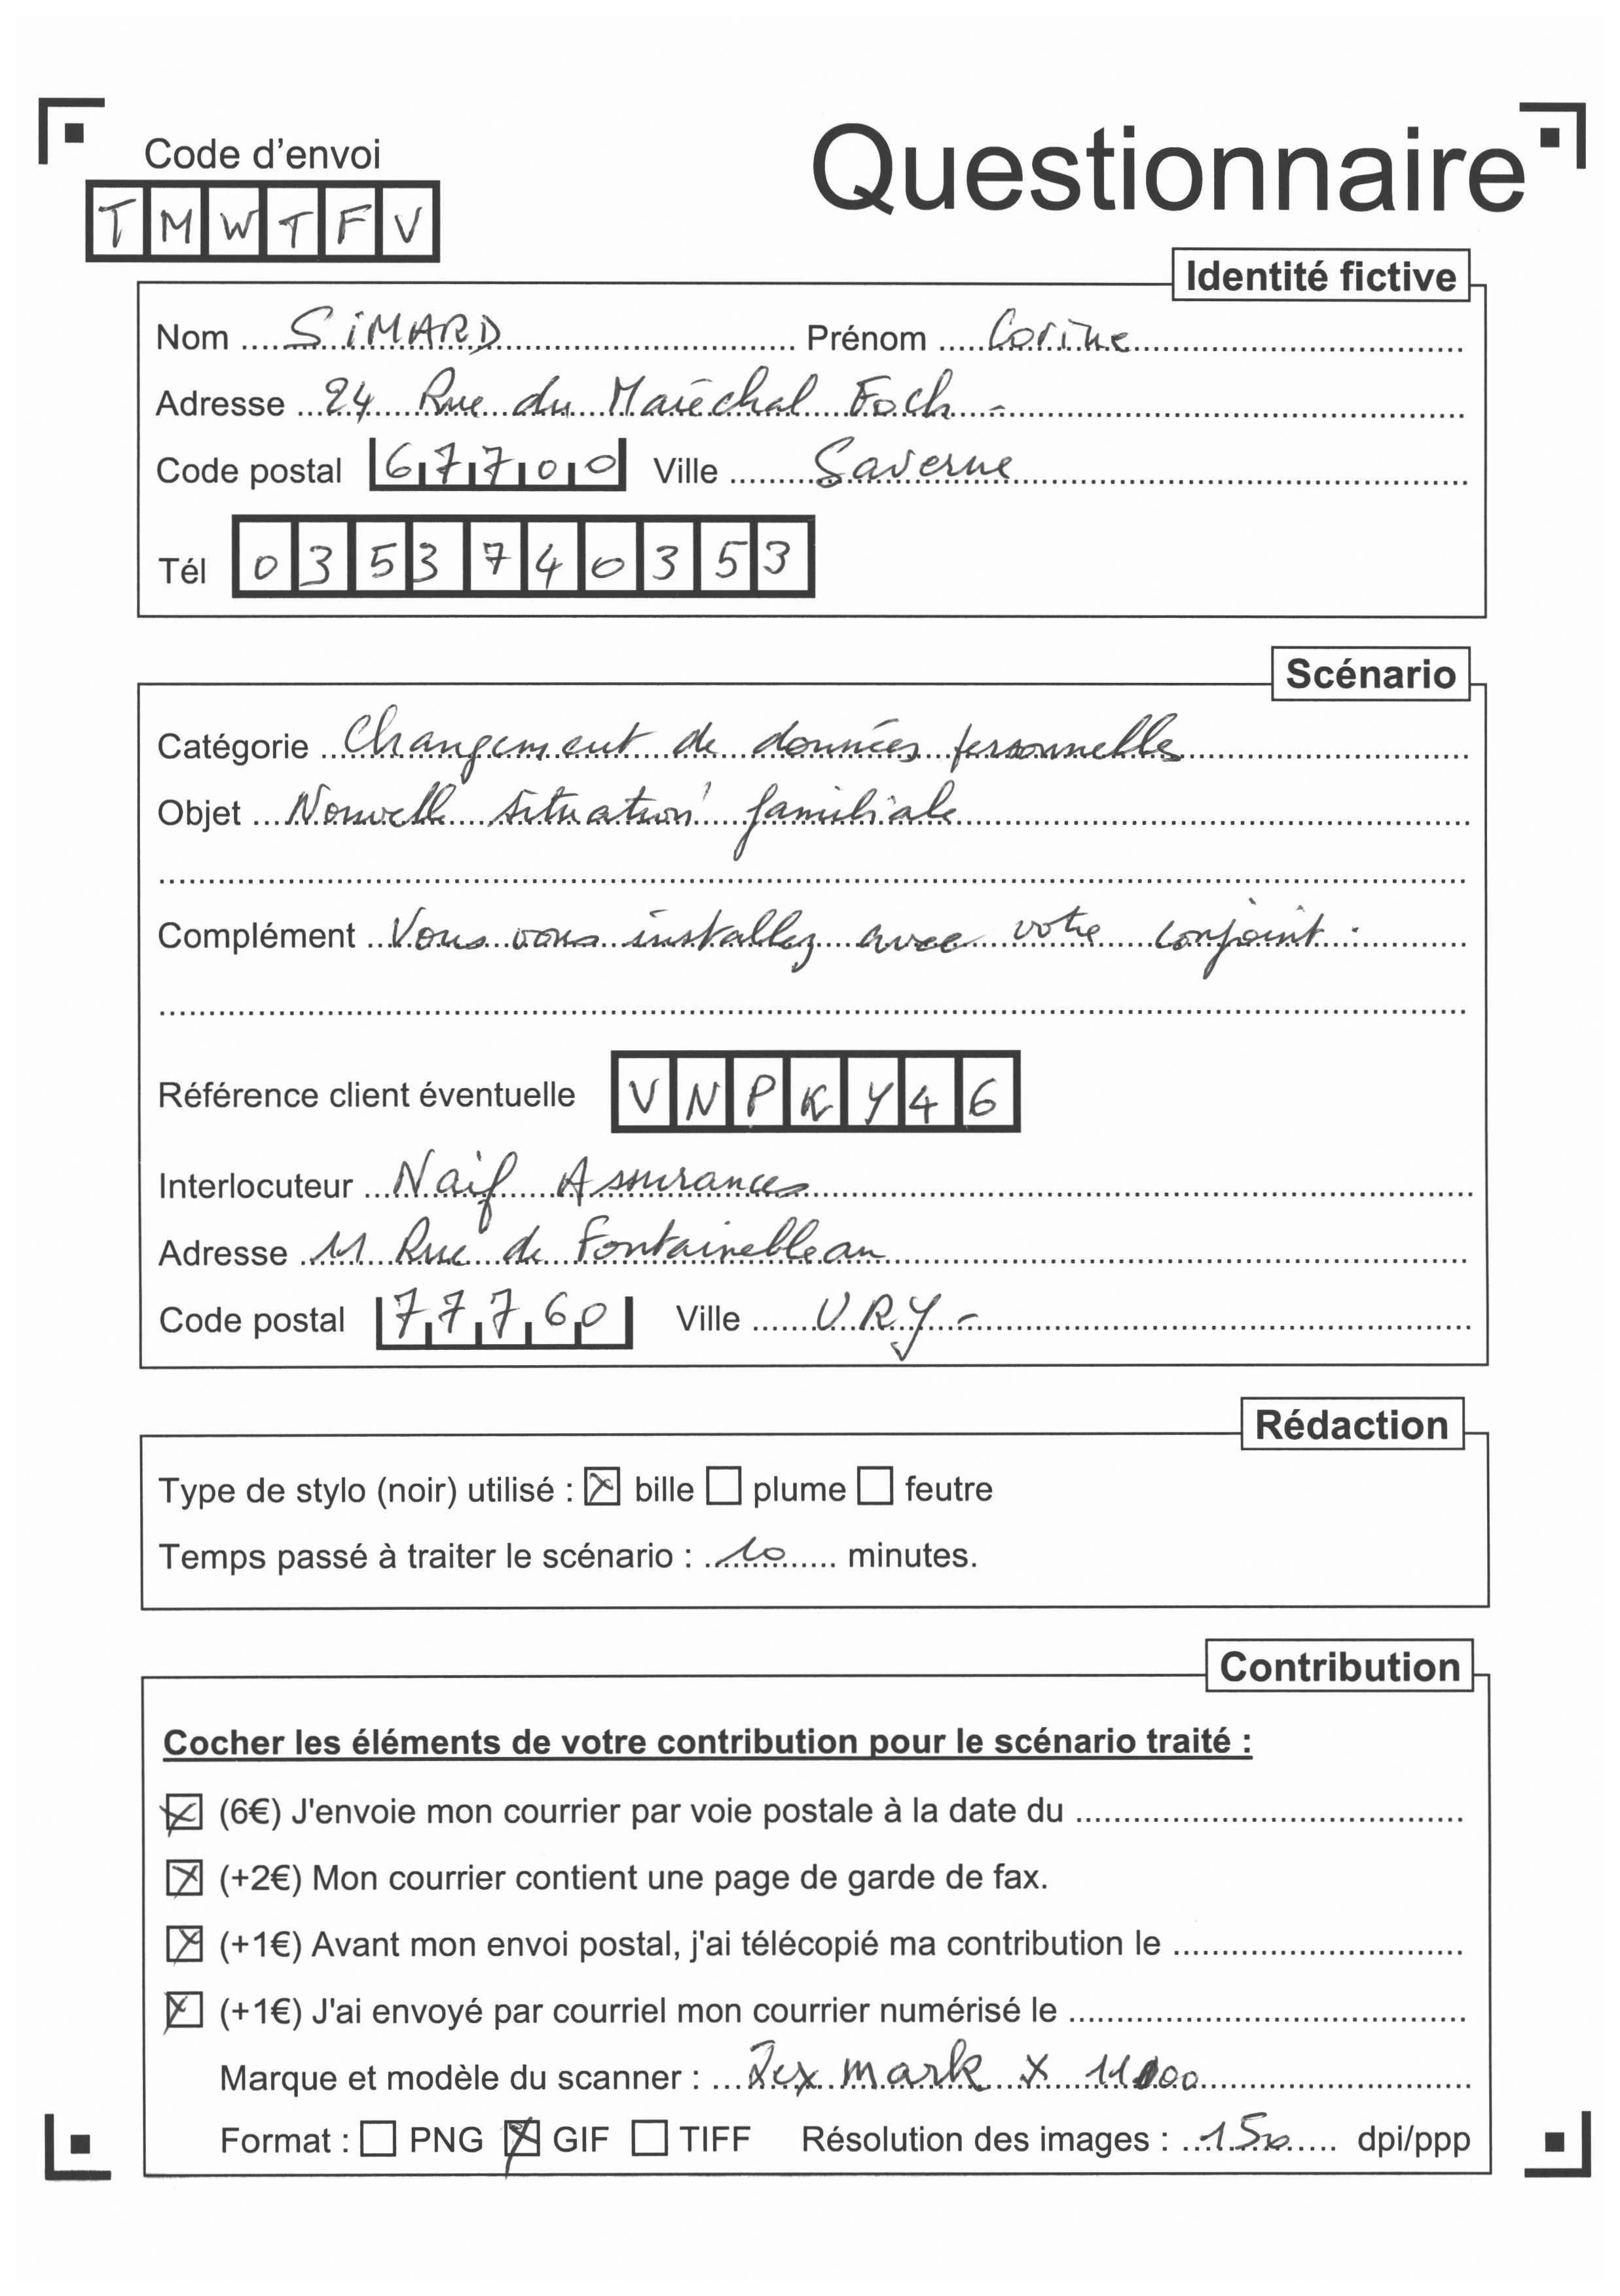 Code d'envoi
Questionnaire
TMWTFV
Identité fictive
Nom SiMARD Prénom Corine
Adresse 24 Rue du Maréchal Foch -
Code postal 67700 Ville Saverne
Tél 0353740353
Scénario
Catégorie Changement de données personnelles
Objet Nouvelle situation familiale
Complément Vous vous installez avec votre conjoint.
Référence client éventuelle VNPKY46
Interlocuteur Naïf Assurances
Adresse 11 Rue de Fontainebleau
Code postal 77760 Ville URY -
Rédaction
Type de stylo (noir) utilisé : ☒ bille ☐ plume ☐ feutre
Temps passé à traiter le scénario : 10 minutes.
Contribution
Cocher les éléments de votre contribution pour le scénario traité :
☒ (6€) J'envoie mon courrier par voie postale à la date du
☒ (+2€) Mon courrier contient une page de garde de fax.
☒ (+1€) Avant mon envoi postal, j'ai télécopié ma contribution le
☒ (+1€) J'ai envoyé par courriel mon courrier numérisé le
Marque et modèle du scanner : Lexmark X 11000
Format : ☐ PNG ☒ GIF ☐ TIFF Résolution des images : 150 dpi/ppp